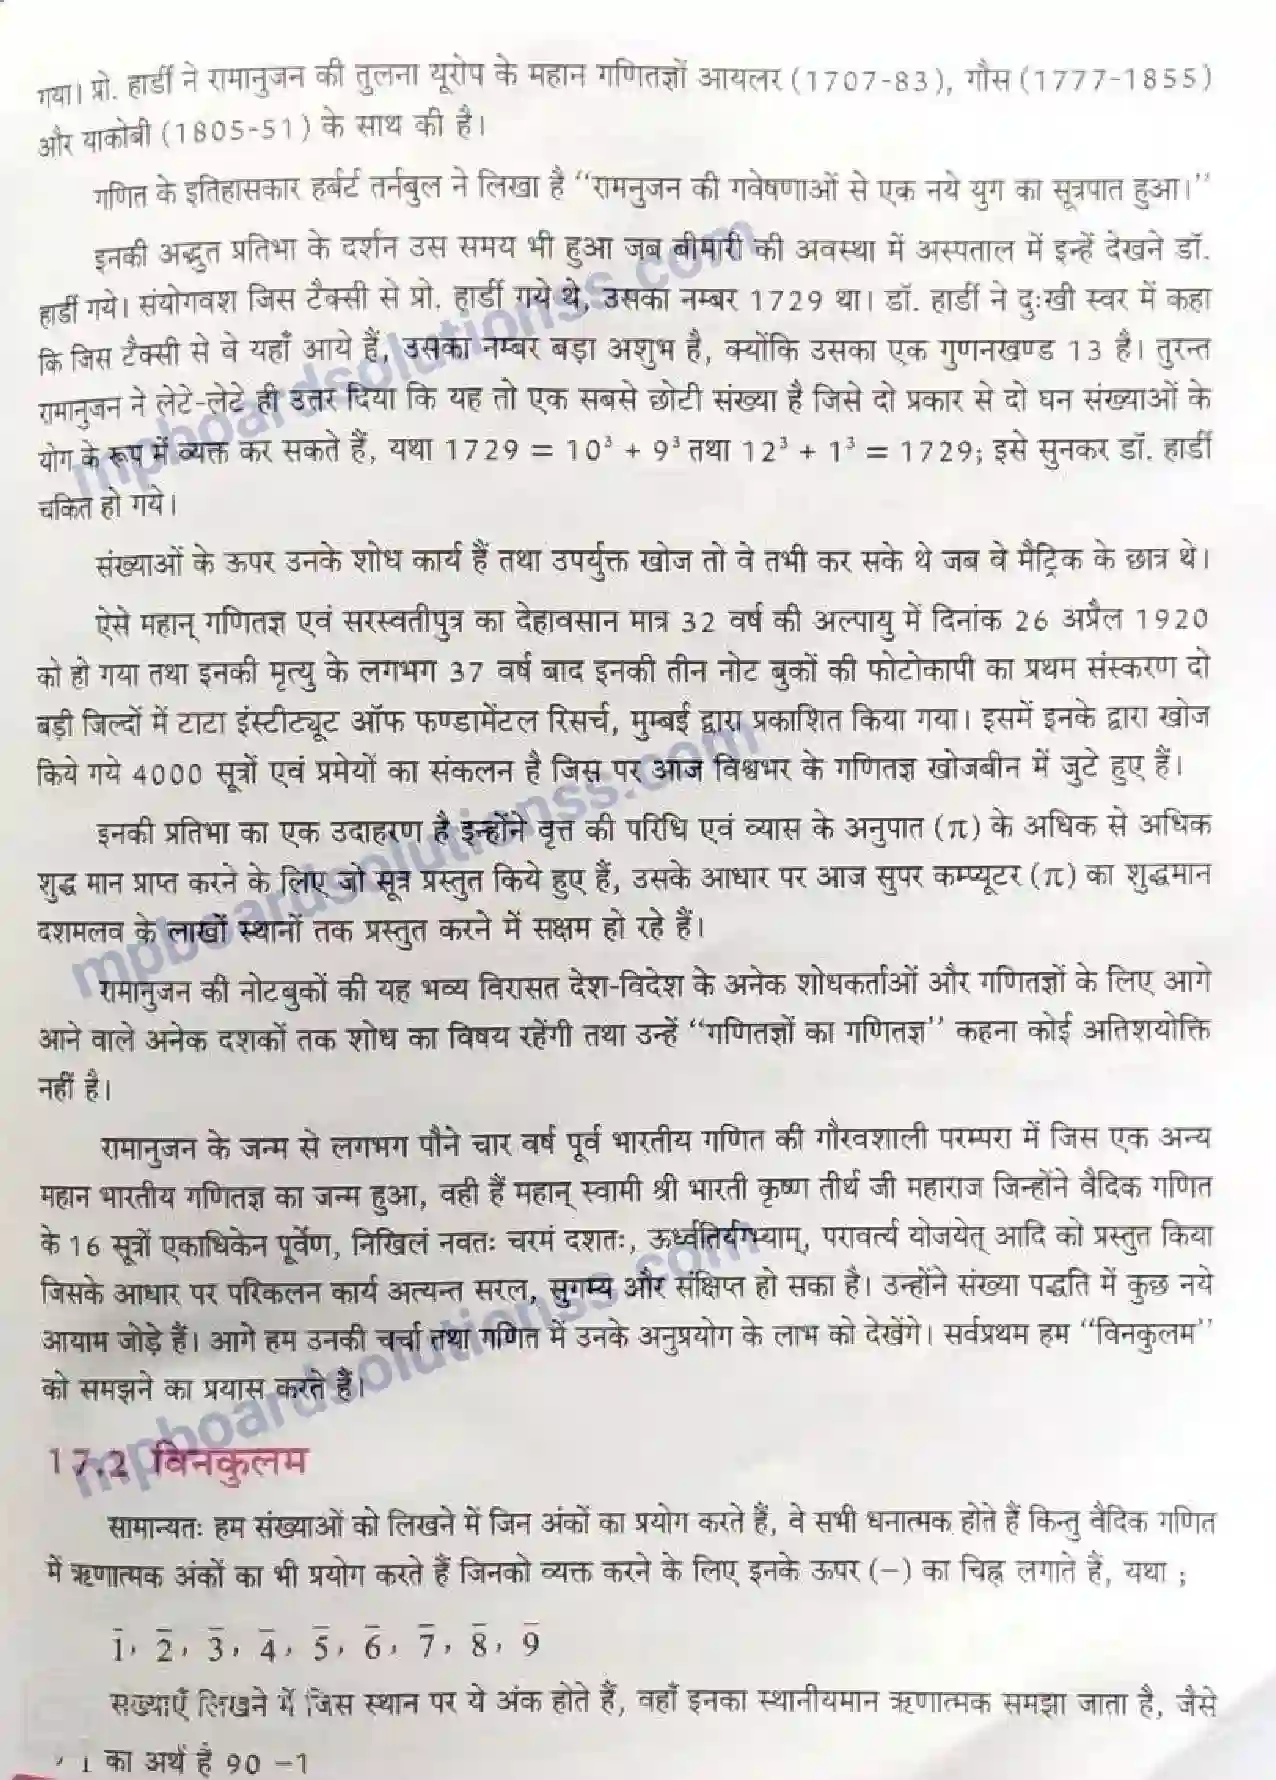 गया। प्रो. हार्डी ने रामानुजन की तुलना यूरोप के महान गणितज्ञों आयलर (1707-83), गौस (1777-1855)
और याकोबी (1805-51) के साथ की है।
गणित के इतिहासकार हर्बर्ट तर्नबुल ने लिखा है “रामनुजन की गवेषणाओं से एक नये युग का सूत्रपात हुआ।”
इनकी अद्भुत प्रतिभा के दर्शन उस समय भी हुआ जब बीमारी की अवस्था में अस्पताल में इन्हें देखने डॉ.
हार्डी गये। संयोगवश जिस टैक्सी से प्रो. हार्डी गये थे, उसका नम्बर 1729 था। डॉ. हार्डी ने दुःखी स्वर में कहा
कि जिस टैक्सी से वे यहाँ आये हैं, उसका नम्बर बड़ा अशुभ है, क्योंकि उसका एक गुणनखण्ड 13 है। तुरन्त
रामानुजन ने लेटे-लेटे ही उत्तर दिया कि यह तो एक सबसे छोटी संख्या है जिसे दो प्रकार से दो घन संख्याओं के
योग के रूप में व्यक्त कर सकते हैं, यथा 1729 = 10³ + 9³ तथा 12³ + 1³ = 1729; इसे सुनकर डॉ. हार्डी
चकित हो गये।
संख्याओं के ऊपर उनके शोध कार्य हैं तथा उपर्युक्त खोज तो वे तभी कर सके थे जब वे मैट्रिक के छात्र थे।
ऐसे महान् गणितज्ञ एवं सरस्वतीपुत्र का देहावसान मात्र 32 वर्ष की अल्पायु में दिनांक 26 अप्रैल 1920
को हो गया तथा इनकी मृत्यु के लगभग 37 वर्ष बाद इनकी तीन नोट बुकों की फोटोकापी का प्रथम संस्करण दो
बड़ी जिल्दों में टाटा इंस्टीट्यूट ऑफ फण्डामेंटल रिसर्च, मुम्बई द्वारा प्रकाशित किया गया। इसमें इनके द्वारा खोज
किये गये 4000 सूत्रों एवं प्रमेयों का संकलन है जिस पर आज विश्वभर के गणितज्ञ खोजबीन में जुटे हुए हैं।
इनकी प्रतिभा का एक उदाहरण है इन्होंने वृत्त की परिधि एवं व्यास के अनुपात (π) के अधिक से अधिक
शुद्ध मान प्राप्त करने के लिए जो सूत्र प्रस्तुत किये हुए हैं, उसके आधार पर आज सुपर कम्प्यूटर (π) का शुद्धमान
दशमलव के लाखों स्थानों तक प्रस्तुत करने में सक्षम हो रहे हैं।
रामानुजन की नोटबुकों की यह भव्य विरासत देश-विदेश के अनेक शोधकर्ताओं और गणितज्ञों के लिए आगे
आने वाले अनेक दशकों तक शोध का विषय रहेंगी तथा उन्हें “गणितज्ञों का गणितज्ञ” कहना कोई अतिशयोक्ति
नहीं है।
रामानुजन के जन्म से लगभग पौने चार वर्ष पूर्व भारतीय गणित की गौरवशाली परम्परा में जिस एक अन्य
महान भारतीय गणितज्ञ का जन्म हुआ, वही हैं महान् स्वामी श्री भारती कृष्ण तीर्थ जी महाराज जिन्होंने वैदिक गणित
के 16 सूत्रों एकाधिकेन पूर्वेण, निखिलं नवतः चरमं दशतः, ऊर्ध्वतिर्यग्भ्याम्, परावर्त्य योजयेत् आदि को प्रस्तुत किया
जिसके आधार पर परिकलन कार्य अत्यन्त सरल, सुगम्य और संक्षिप्त हो सका है। उन्होंने संख्या पद्धति में कुछ नये
आयाम जोड़े हैं। आगे हम उनकी चर्चा तथा गणित में उनके अनुप्रयोग के लाभ को देखेंगे। सर्वप्रथम हम “विनकुलम”
को समझने का प्रयास करते हैं।
17.2 विनकुलम
सामान्यतः हम संख्याओं को लिखने में जिन अंकों का प्रयोग करते हैं, वे सभी धनात्मक होते हैं किन्तु वैदिक गणित
में ऋणात्मक अंकों का भी प्रयोग करते हैं जिनको व्यक्त करने के लिए इनके ऊपर (−) का चिह्न लगाते हैं, यथा ;
1̄, 2̄, 3̄, 4̄, 5̄, 6̄, 7̄, 8̄, 9̄
संख्याएँ लिखने में जिस स्थान पर ये अंक होते हैं, वहाँ इनका स्थानीयमान ऋणात्मक समझा जाता है, जैसे
1̄ का अर्थ है 90 −1
mpboardsolutionss.com
mpboardsolutionss.com
mpboardsolutionss.com